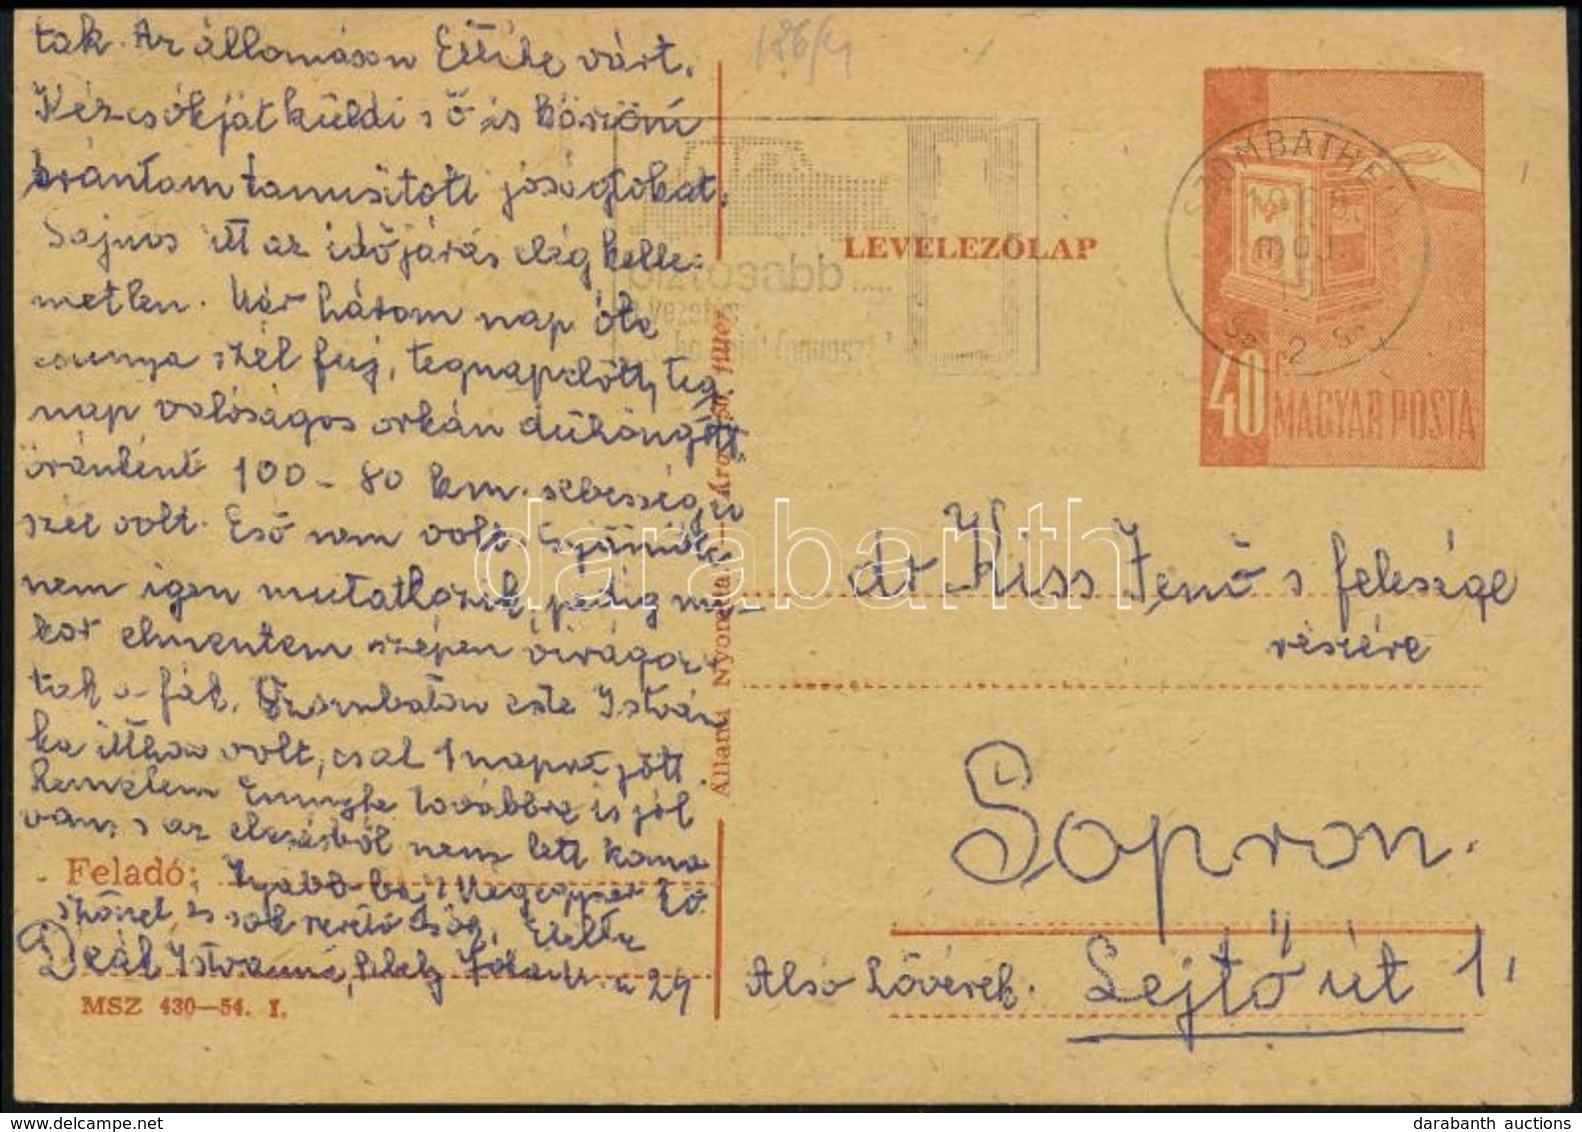 tak. Az állomáson Etelke várt.
Kézcsókját küldi s ő is köszöni
irántam tanusitott jóságtokat.
Sajnos itt az időjárás elég kelle-
metlen. Már három nap óta
csunya szél fuj, tegnapelőtt, teg
nap valóságos orkán dühöngött,
óránként 100-80 km. sebességü
szél volt. Eső nem volt.
nem igen mutatkozik, pedig mi-
kor elmentem szépen virágoz-
tak a fák. Szombaton este István
ka itthon volt, csak 1 napra jött.
Remélem továbbra is jól
van s az elesésből nem lett koma
Feladó: lyabb baj. Mégegyszer kö
szönet, és sok
Deák Istvánné, 29
MSZ 430—54. I.
186/4
LEVELEZŐLAP
SZOMBATHELY
2
40 f
MAGYAR POSTA
Állami Nyomda
dr Kiss Jenő s felesége
részére
Sopron.
Alsó Lövérek. Lejtő út 1.
darabanth
darabanth auctions